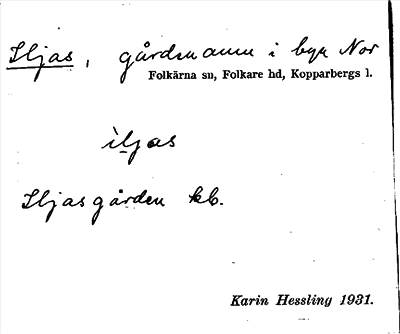 Iljas, gårdsnamn i byn Nor
Folkärna sn, Folkare hd, Kopparbergs l.
ìljas
Iljasgården kb.
Karin Hessling 1931.